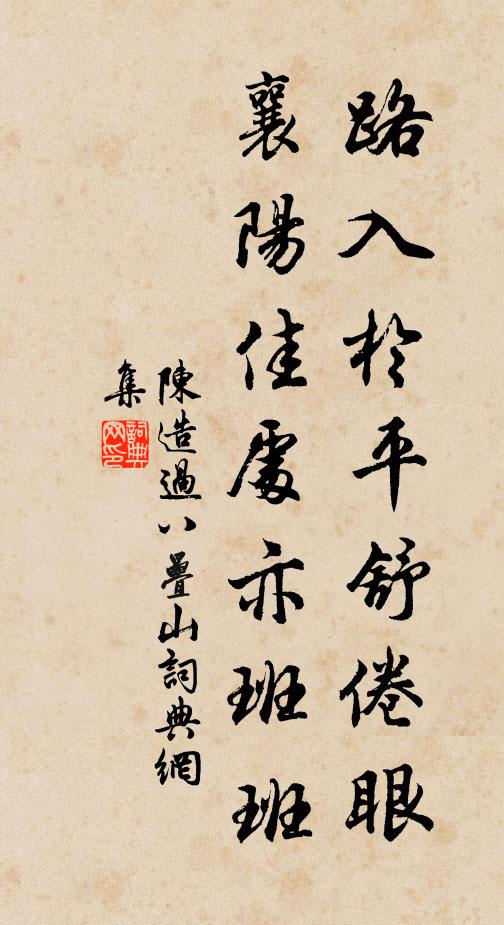 路入於平舒倦眼
襄陽佳處亦班班
陳造過八疊山詞典網
集
詞典
网印